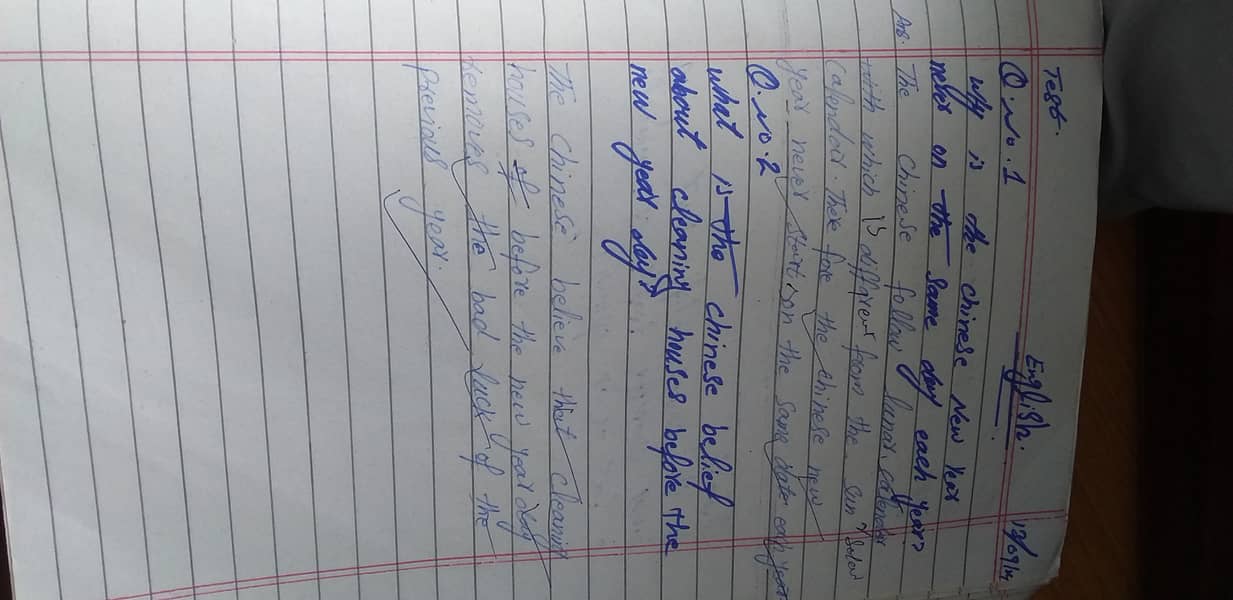 English. 13/09/14
Test.
Q.No.1
Why is the chinese New year
never on the same day each year?
Ans. The chinese follow lunar calendar
with which is different from the sun solar
calender. There fore the chinese new
year never start on the same date each year.
Q.No.2
what is the chinese belief
about cleaning houses before the
new year day?
The chinese believe that cleaning
houses of before the new year day
removes the bad luck of the
previous year.